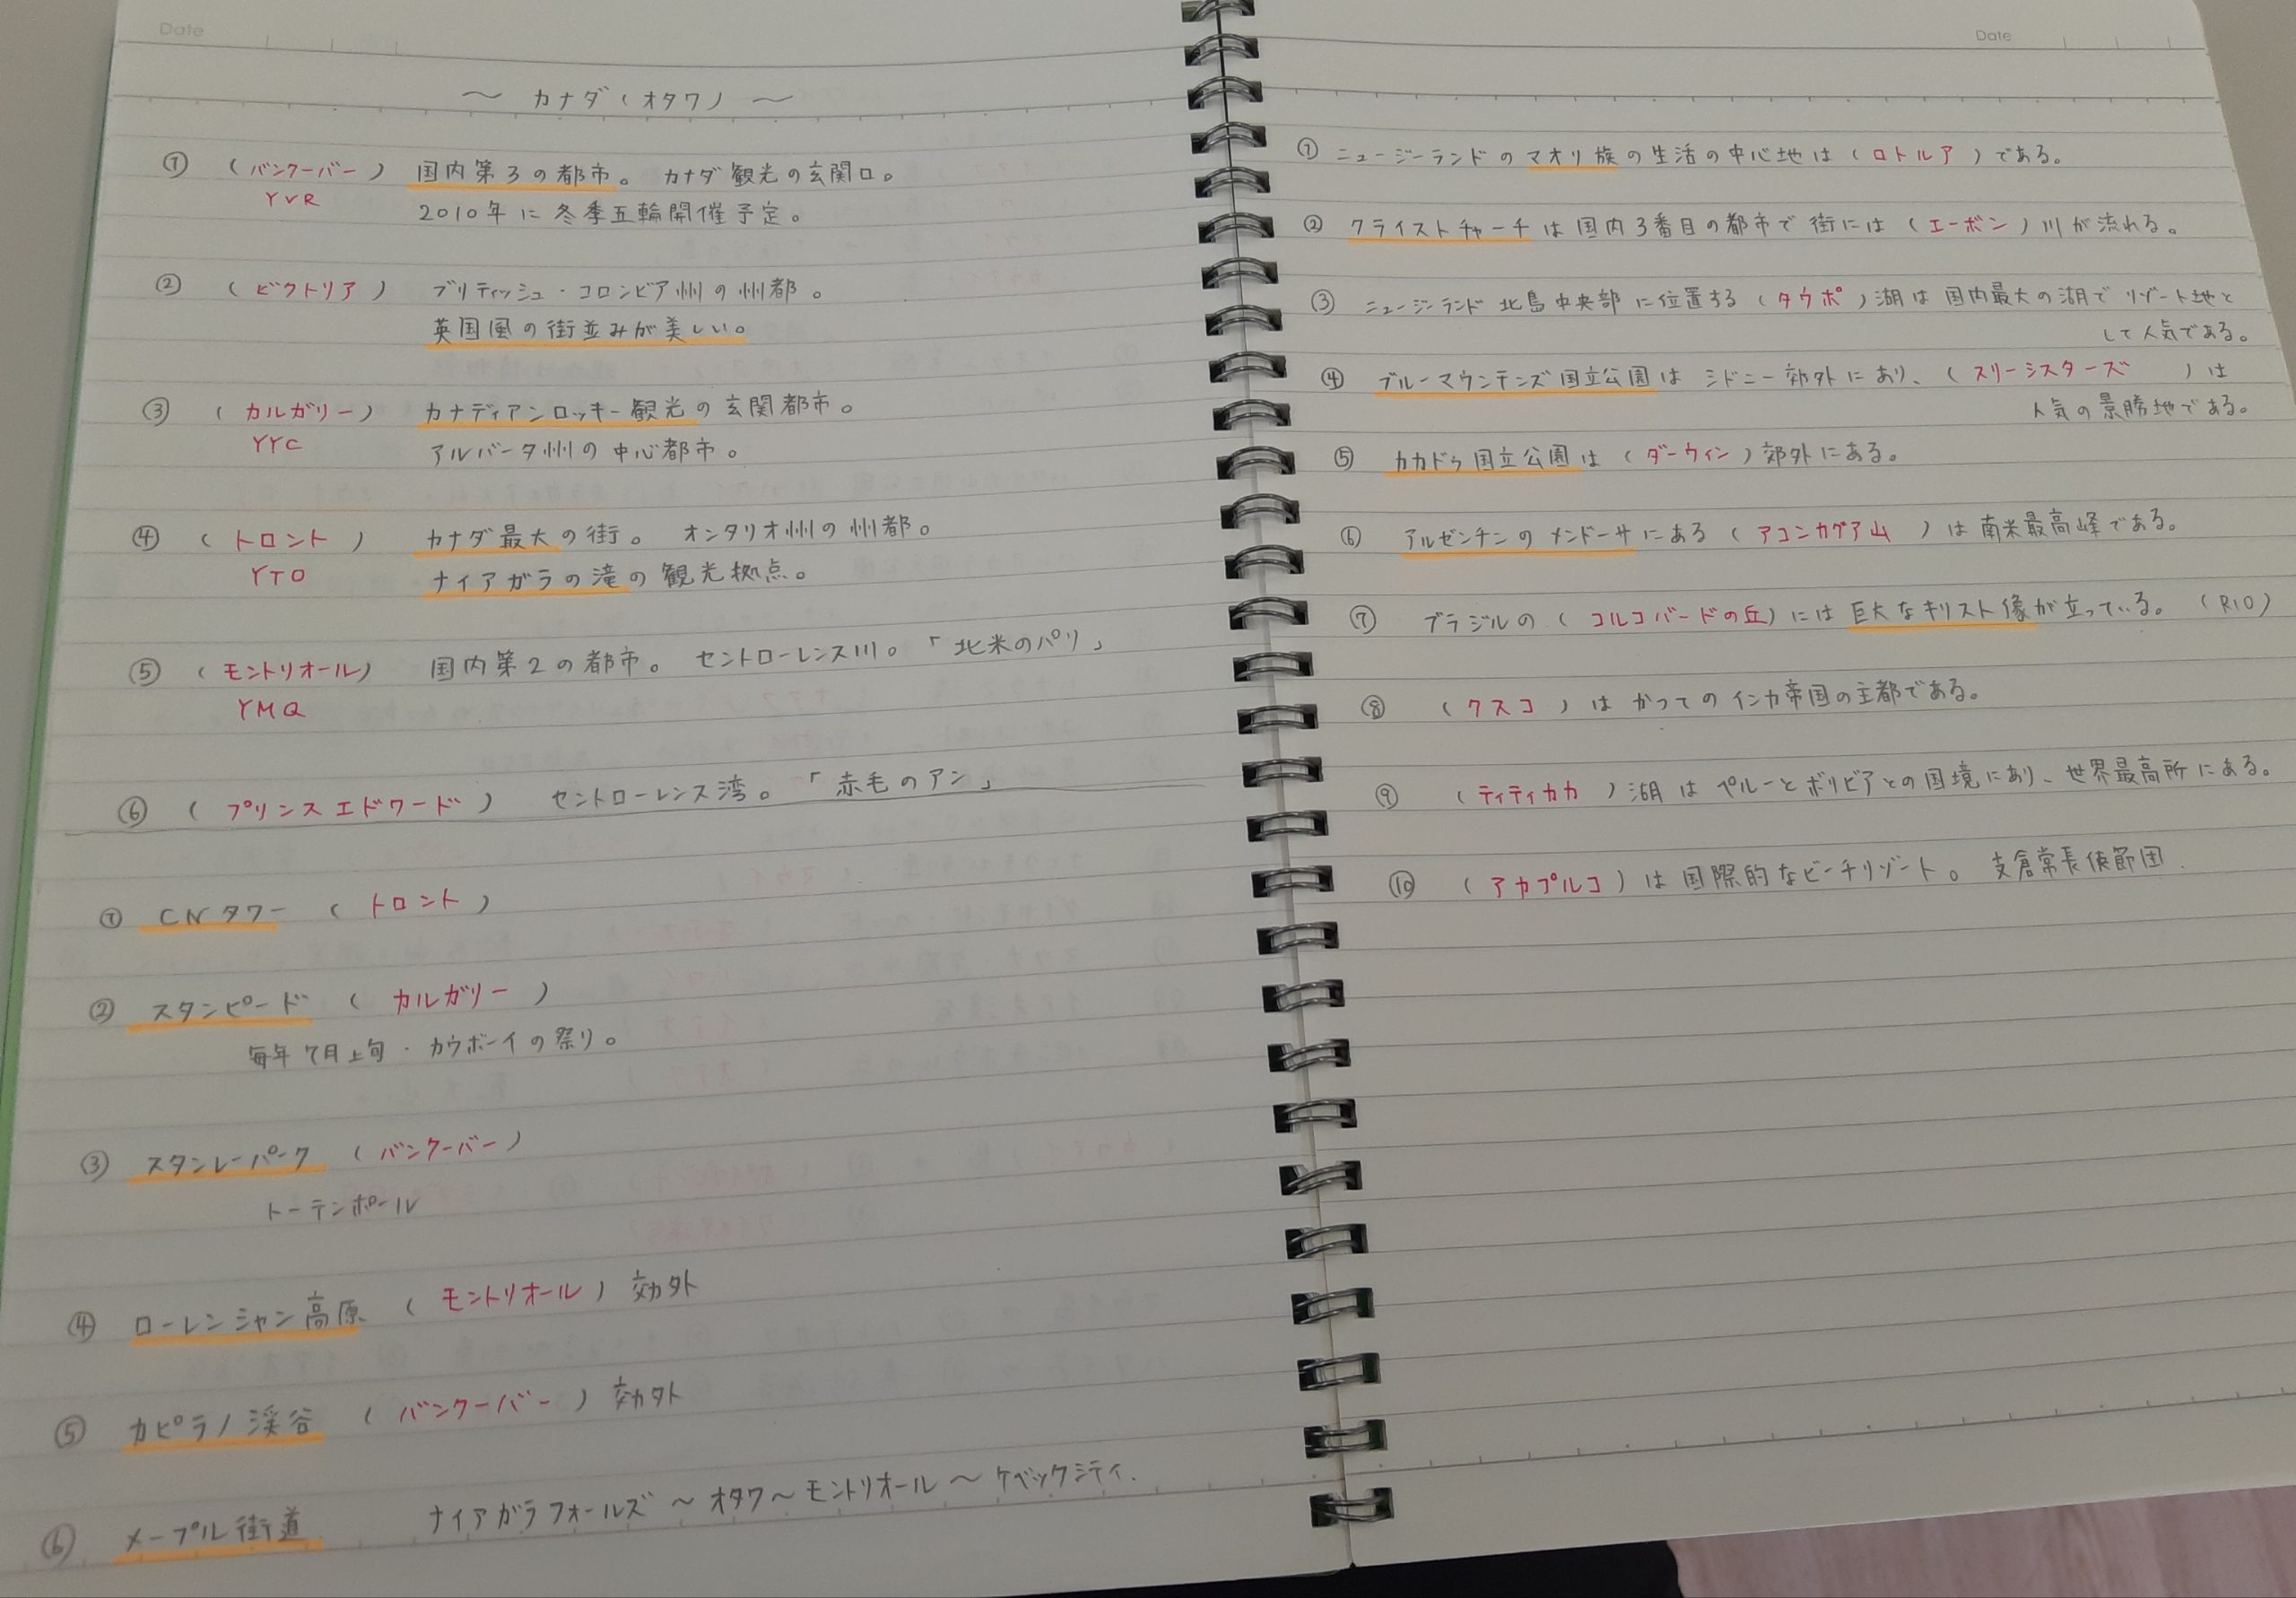 Date
～ カナダ(オタワ) ～
① (バンクーバー) 国内第3の都市。 カナダ観光の玄関口。
YVR 2010年に冬季五輪開催予定。
② (ビクトリア) ブリティッシュ・コロンビア州の州都。
英国風の街並みが美しい。
③ (カルガリー) カナディアンロッキー観光の玄関都市。
YYC アルバータ州の中心都市。
④ (トロント) カナダ最大の街。 オンタリオ州の州都。
YTO ナイアガラの滝の観光拠点。
⑤ (モントリオール) 国内第2の都市。 セントローレンス川。「北米のパリ」
YMQ
⑥ (プリンスエドワード) セントローレンス湾。「赤毛のアン」
① CNタワー (トロント)
② スタンピード (カルガリー)
毎年7月上旬・カウボーイの祭り。
③ スタンレーパーク (バンクーバー)
トーテンポール
④ ローレンシャン高原 (モントリオール) 効外
⑤ カピラノ渓谷 (バンクーバー) 効外
⑥ メープル街道 ナイアガラフォールズ～オタワ～モントリオール～ケベックシティ.
Date
① ニュージーランドのマオリ族の生活の中心地は(ロトルア)である。
② クライストチャーチは国内3番目の都市で街には(エーボン)川が流れる。
③ ニュージーランド北島中央部に位置する(タウポ)湖は国内最大の湖でリゾート地と
して人気である。
④ ブルーマウンテンズ国立公園はシドニー郊外にあり、(スリーシスターズ)は
人気の景勝地である。
⑤ カカドゥ国立公園は(ダーウィン)郊外にある。
⑥ アルゼンチンのメンドーサにある(アコンカグア山)は南米最高峰である。
⑦ ブラジルの(コルコバードの丘)には巨大なキリスト像が立っている。(RIO)
⑧ (クスコ)はかつてのインカ帝国の主都である。
⑨ (ティティカカ)湖はペルーとボリビアとの国境にあり、世界最高所にある。
⑩ (アカプルコ)は国際的なビーチリゾート。 支倉常長使節団.